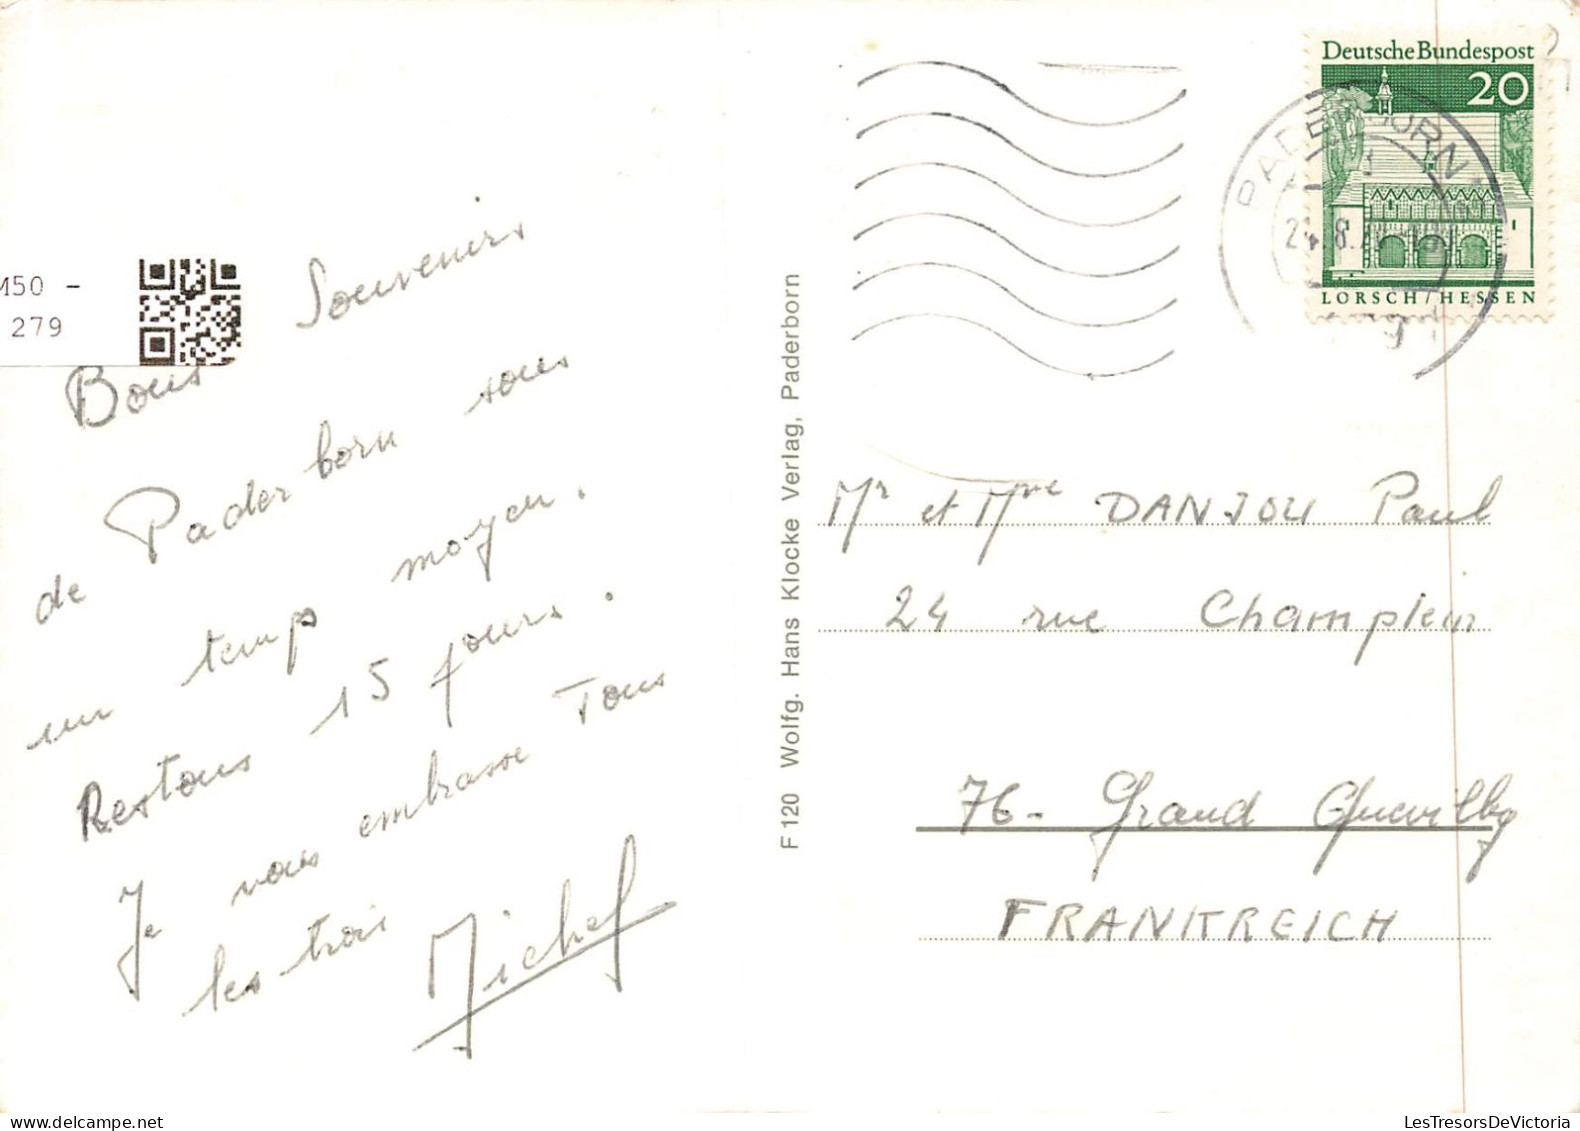 Bons Souvenirs
de Paderborn sous
un temps moyen.
Restons 15 jours.
Je vous embrasse Tous
les trois Michel
M50 -
279
F 120 Wolfg. Hans Klocke Verlag, Paderborn
Deutsche Bundespost
20
LORSCH/HESSEN
PADERBORN
Mr et Mme DANJOU Paul
24 rue Champlein
76- Grand Quevilly
FRANKREICH
LesTresorsDeVictoria.com